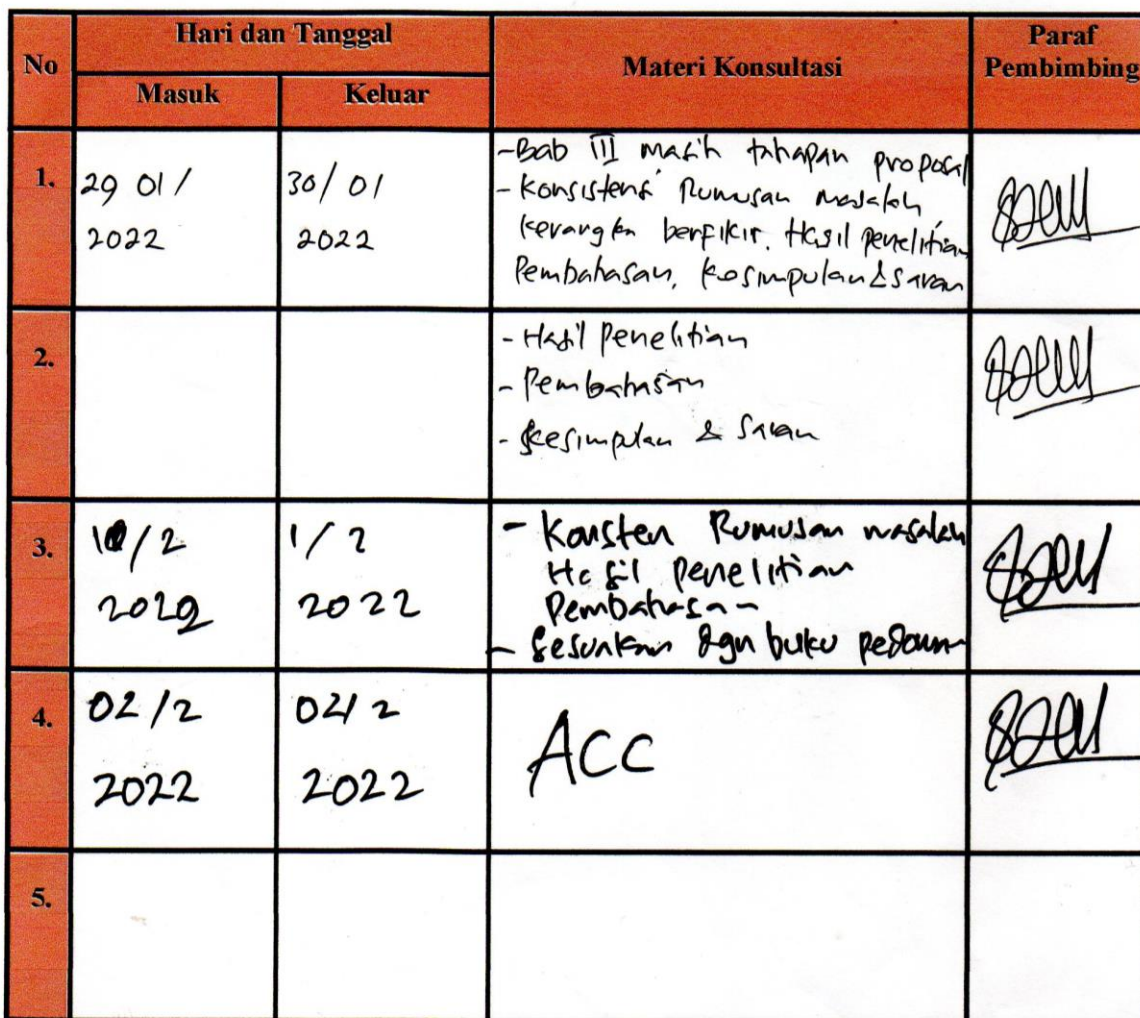 No
Hari dan Tanggal
Materi Konsultasi
Paraf
Pembimbing
Masuk
Keluar
1.
29 01 /
2022
30/ 01
2022
-Bab III masih tahapan proposal
- Konsistensi Rumusan masalah
kerangka berfikir. Hasil penelitian
Pembahasan, Kesimpulan & Saran
2.
- Hasil Penelitian
- Pembahasan
- Kesimpulan & Saran
3.
/ 2
1 / 2
2022
- Konsten Rumusan masalah
Hasil penelitian
Pembahasan
- Sesuaikan dgn buku pedoman
4.
02 / 2
2022
02/ 2
2022
ACC
5.